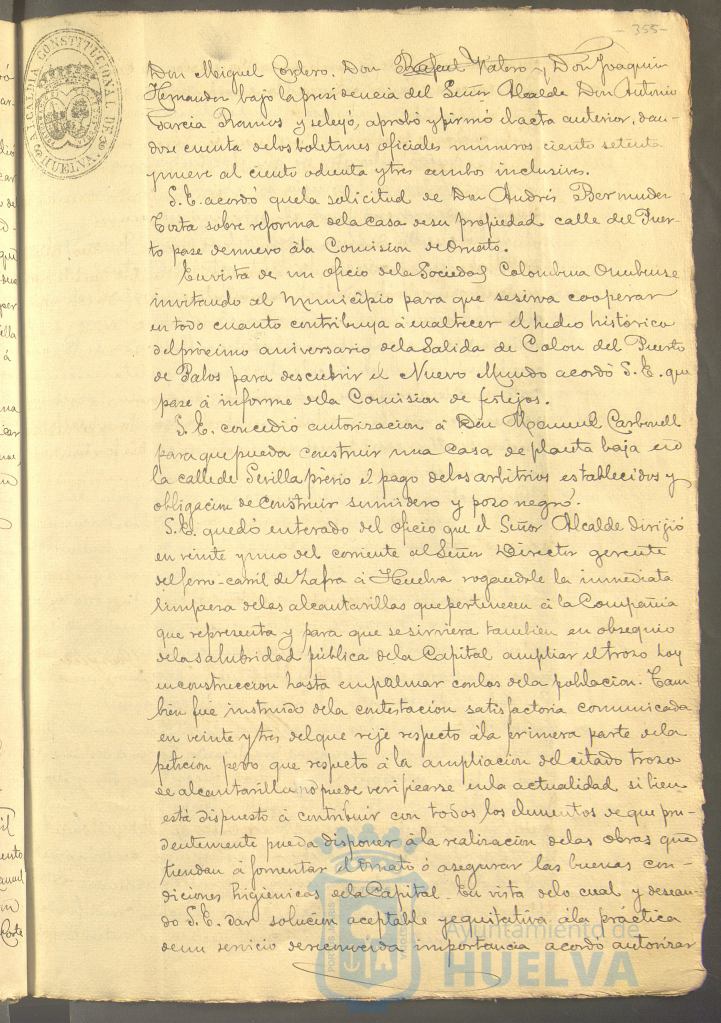 - 355 -
ALCALDIA CONSTITUCIONAL DE
HUELVA
Don Miguel Cordero, Don Rafael Valero y Don Joaquin
Hernandez bajo la presidencia del Señor Alcalde Don Antonio
Garcia Ramos y se leyó, aprobó y firmó el acta anterior, dan-
dose cuenta de los boletines oficiales números ciento setenta
y nueve al ciento ochenta y tres ambos inclusives.
S. E. acordó que la solicitud de Don Andrés Bermudez
Corta sobre reforma de la casa de su propiedad calle del Puer-
to pase de nuevo á la Comision de Ornato.
En vista de un oficio de la Sociedad Colombina Onubense
invitando al Municipio para que se sirva cooperar
en todo cuanto contribuya á enaltecer el hecho histórico
del próximo aniversario de la Salida de Colon del Puerto
de Palos para descubrir el Nuevo Mundo acordó S. E. que
pase á informe de la Comision de festejos.
S. E. concedió autorizacion á Don Manuel Carbonell
para que pueda construir una casa de planta baja en
la calle de Sevilla previo el pago de los arbitrios establecidos y
obligacion de construir sumidero y pozo negro.
S. E. quedó enterado del oficio que el Señor Alcalde dirijió
en veinte y uno del corriente al Señor Director gerente
del ferro-carril de Zafra á Huelva rogandole la inmediata
limpieza de las alcantarillas que pertenecen á la Compañia
que representa y para que se sirviera tambien en obsequio
de la salubridad pública de la Capital ampliar el trozo hoy
en construccion hasta empalmar con los de la poblacion. Tam
bien fue instruido de la contestacion satisfactoria comunicada
en veinte y tres del que rije respecto á la primera parte de la
peticion pero que respecto á la ampliacion del citado trozo
de alcantarilla no puede verificarse en la actualidad si bien
está dispuesto á contribuir con todos los elementos de que pru-
dentemente pueda disponer á la realizacion de las obras que
tiendan á fomentar el Ornato ó asegurar las buenas con-
diciones higiénicas de la Capital. En vista de lo cual y desean-
do S. E. dar solucion aceptable y equitativa á la práctica
de un servicio de reconocida importancia acordó autorizar
Ayuntamiento de
HUELVA